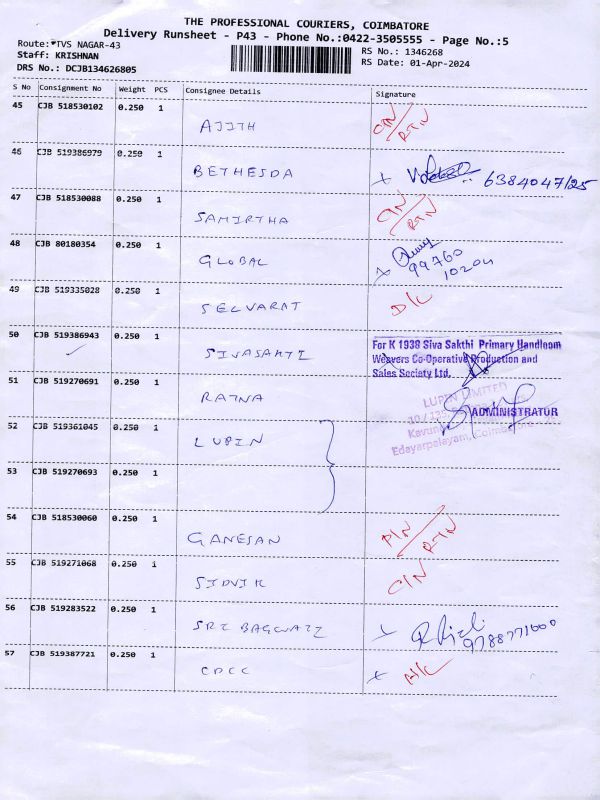 THE PROFESSIONAL COURIERS, COIMBATORE
Delivery Runsheet - P43 - Phone No.:0422-3505555 - Page No.:5
Route:*TVS NAGAR-43
Staff: KRISHNAN
DRS No.: DCJB134626805
RS No.: 1346268
RS Date: 01-Apr-2024
S No Consignment No Weight PCS Consignee Details Signature
45 CJB 518530102 0.250 1
AJITH
CIN/RTN
46 CJB 519386979 0.250 1
BETHESDA
6384047125
47 CJB 518530088 0.250 1
SAMIRTHA
CIN/RTN
48 CJB 80180354 0.250 1
GLOBAL
99760
10204
49 CJB 519335028 0.250 1
SELVARAT
D/C
50 CJB 519386943 0.250 1
SIVASAKTI
For K 1938 Siva Sakthi Primary Handloom
Weavers Co-Operative Production and
Sales Society Ltd.
51 CJB 519270691 0.250 1
RATNA
LUPIN LIMITED
ADMINISTRATOR
Edayarpalayam, Coimbatore
52 CJB 519361045 0.250 1
LUPIN
53 CJB 519270693 0.250 1
54 CJB 518530060 0.250 1
GANESAN
PIN/RTN
55 CJB 519271068 0.250 1
SIDVIK
CIN
56 CJB 519283522 0.250 1
SRI BAGWATI
9788771600
57 CJB 519387721 0.250 1
CPCC
A/C